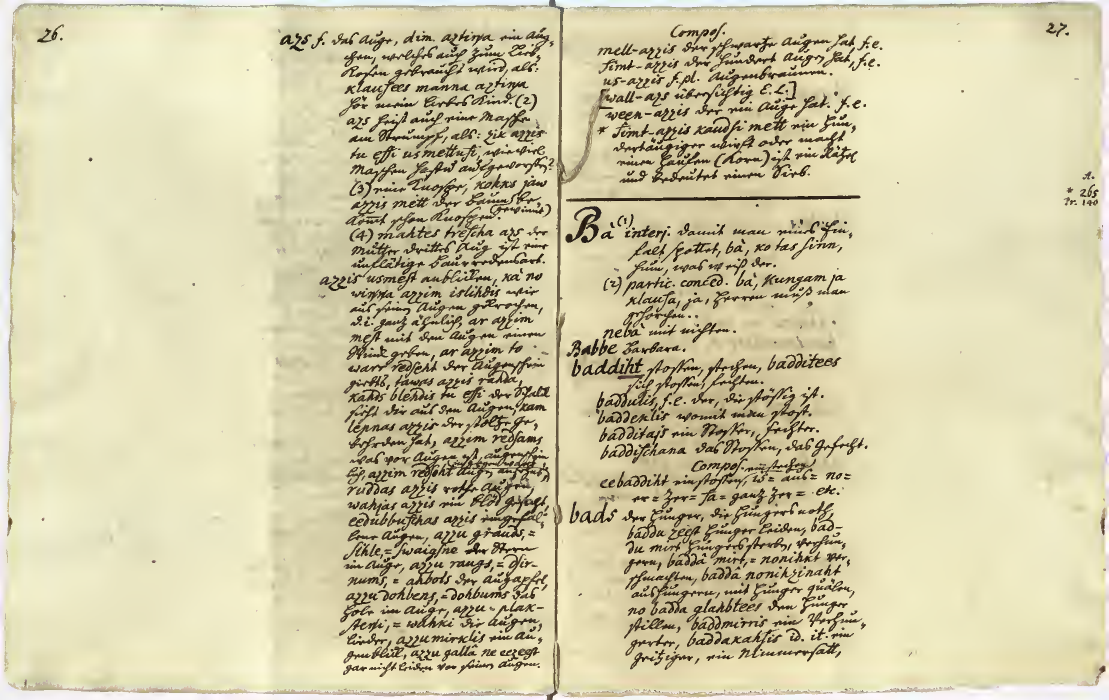 26.
azs f. das Auge, dim. aztiņa ein Äug-
chen, welches auch zum Lieb-
kosen gebraucht wird, als:
klausees manna aztiņa
hör mein liebes Kind. (2)
azs heist auch eine Masche
am Strumpf, als: zik azzis
tu essi usmettusi, wie viel
Maschen hastu aufgeworffen?
(3) eine Knospe, kohks jau
azzis mett der Baum be-
komt schon Knospen. (gewinnt)
(4) mahtes trescha azs der
Mutter drittes Aug ist eine
unflätige Baurredensart.
azzis usmest anblicken, kà no
wiņņa azzim islihdis wie
aus seinen Augen gekrochen,
d.i. ganz ähnlich, ar azzim
mest mit den Augen einen
Wink geben, ar azzim to
warr redseht der Augenschein
giebts, tawas azzis rahda,
kahds blehdis tu essi der Schalk
sieht dir aus den Augen, kam
lepnas azzis der stoltze Ge-
behrden hat, azzim redsams
was vor Augen ist, augenschein-
lich, azzim redseht
ruddas azzis rothe Augen,
wahjas azzis ein blöd Gesicht,
eedubbuschas azzis eingefal-
lene Augen, azzu grauds, =
sihle, = swaigsne der Stern
im Auge, azzu raugs, = dsir-
nums, = ahbols der Augapfel,
azzu dohbens, = dohbums das
Hole im Auge, azzu = plak-
steņi, = wahki die Augen-
lieder, azzumirklis ein Au-
genblick, azzu gallâ ne eezeest
gar nicht leiden vor seinen Augen.
27.
Compos.
mell-azzis der schwarze Augen hat f. e.
simt-azzis der hundert Augen hat, f. e.
us-azzis f. pl. Augenbraunen.
[wall-azs übersichtig E. L.]
ween-azzis der ein Auge hat. f. e.
* simt-azzis kaudsi mett ein Hun-
dertäugiger wirft oder macht
einen Haufen (Korn) ist ein Rätzel
und bedeutet einen Sieb.
* 265
Bà (1) interj. damit man eines Ein-
falt spottet, bà, ko tas sinn,
hum, was weiß der.
(2) partic. conced. bà, Kungam ja
klausa, ja, Herren muß man
gehorchen..
nebà mit nichten.
Babbe Barbara.
baddiht stossen, stechen, badditees
sich stossen, fechten.
baddulis, f. e. der, die stössig ist.
baddeklis womit man stost.
badditajs ein Stosser, Fechter.
baddischana das Stossen, das Gefecht.
Compos.
eebaddiht einstossen, is= aus= no=
er= zer= sa= ganz zer= etc.
bads der Hunger, die Hungersnoth,
baddu zeest Hunger leiden, bad-
du mirt Hungers sterben, verhun-
gern, baddà mirt, = nonihkt ver-
schmachten, baddà nonihzinaht
aushungern, mit Hunger quälen,
no badda glahbtees den Hunger
stillen, baddmirris ein Verhun-
gerter, baddakahsis id. it. ein
geitziger, ein Nimmersatt,